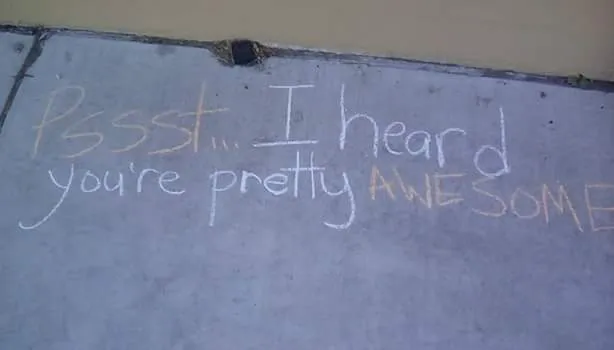 Pssst... I heard
you're pretty AWESOME